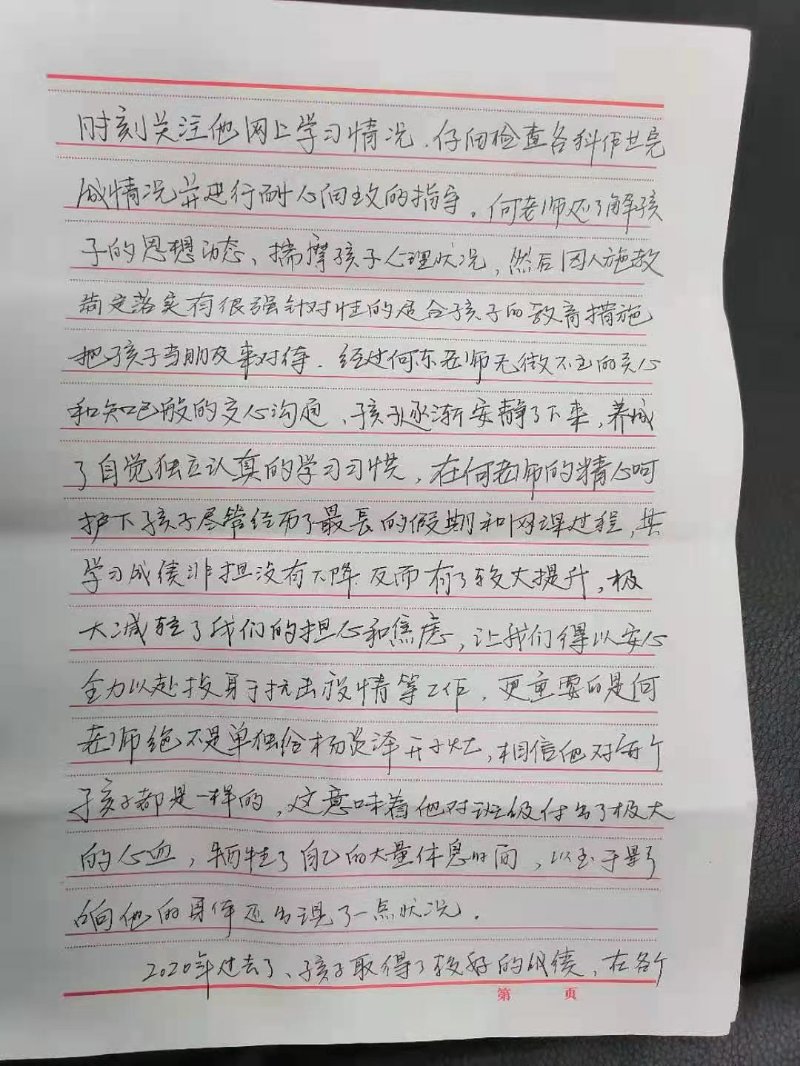 时刻关注他网上学习情况，仔细检查各科作业完
成情况并进行耐心细致的指导。何老师还了解孩
子的思想动态、揣摩孩子心理状况，然后因人施教
制定落实有很强针对性的适合孩子的教育措施
把孩子当朋友来对待。经过何东老师无微不至的关心
和知己般的交心沟通，孩子逐渐安静了下来，养成
了自觉独立认真的学习习惯，在何老师的精心呵
护下孩子尽管经历了最长的假期和网课过程，其
学习成绩非担没有下降反而有了较大提升，极
大减轻了我们的担心和焦虑，让我们得以安心
全力以赴投身于抗击疫情等工作，更重要的是何
老师绝不是单独给杨泽开小灶，相信他对每个
孩子都是一样的，这意味着他对班级付出了极大
的心血，牺牲了自己的大量休息时间，以至于影
响他的身体还出现了一点状况。
2020年过去了、孩子取得了较好的成绩，在各个
第 页